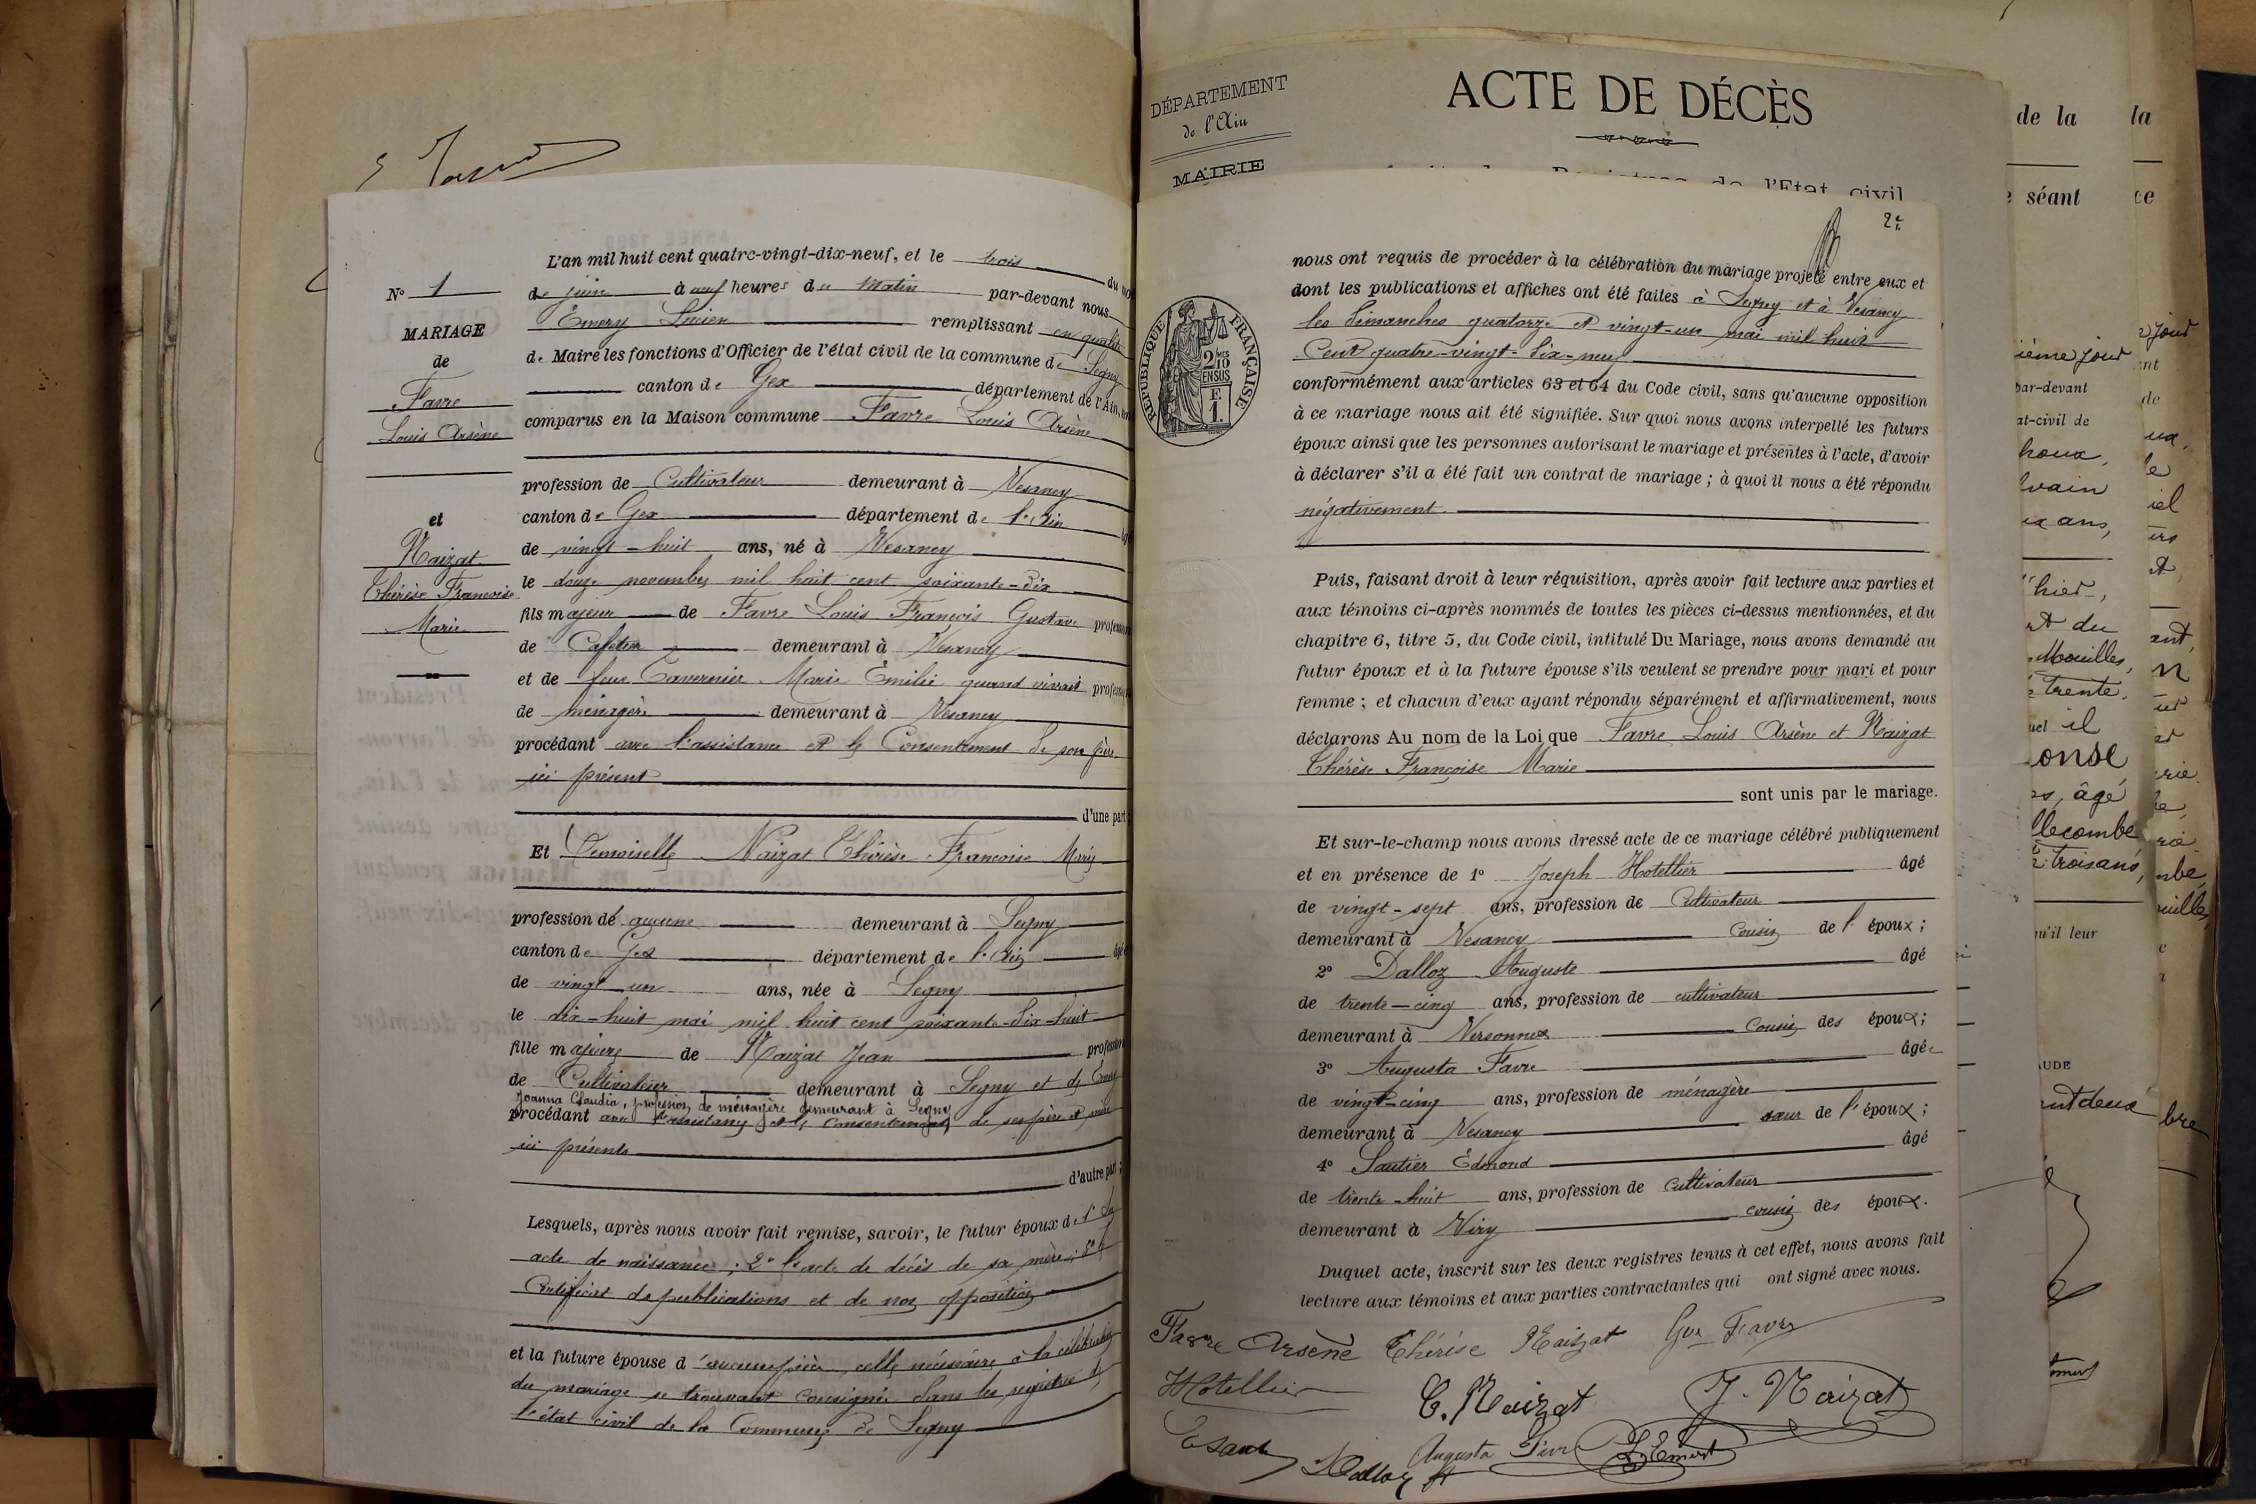 N° 1
MARIAGE
de
Favre
Louis Arsène
et
Naizat
Thérèse Francoise
Marie
L'an mil huit cent quatre-vingt-dix-neuf, et le trois du
de juin à neuf heures du matin par-devant nous
Émery Lucien remplissant en qualité
de Maire les fonctions d'Officier de l'état civil de la commune de Segny
canton de Gex département de l'Ain,
comparus en la Maison commune Favre Louis Arsène
profession de Cultivateur demeurant à Vesancy
canton de Gex département de l'Ain
de vingt-huit ans, né à Vesancy
le douze novembre mil huit cent soixante-dix
fils majeur de Favre Louis François Gustave profession
de Cafetier demeurant à Vesancy
et de feue Tavernier Marie Émilie quand vivait profession
de ménagère demeurant à Vesancy
procédant avec l'assistance et le Consentement de son père
ici présent
d'une part
Et Demoiselle Naizat Thérèse Francoise Marie
profession de aucune demeurant à Segny
canton de Gex département de l'Ain âgée
de vingt-un ans, née à Segny
le dix-huit mai mil huit cent soixante-dix-huit
fille majeure de Naizat Jean profession
de Cultivateur demeurant à Segny et de Émery
Joanna Claudia, profession de ménagère demeurant à Segny
procédant avec l'assistance et le consentement de ses père et mère
ici présents
d'autre part ;
Lesquels, après nous avoir fait remise, savoir, le futur époux de 1° Son
acte de naissance ; 2° l'acte de décès de sa mère ; 3° le
Certificat de publications et de non opposition
et la future épouse d'aucune pièce, celle nécessaire à la célébration
du mariage se trouvant consignée dans les registres de
l'état civil de la Commune de Segny
DÉPARTEMENT
de l'Ain
MAIRIE
ACTE DE DÉCÈS
de l'Etat civil
2e
RÉPUBLIQUE FRANÇAISE
nous ont requis de procéder à la célébration du mariage projeté entre eux et
dont les publications et affiches ont été faites à Segny et à Vesancy
les Dimanches quatorze et vingt-un mai mil huit
Cent quatre-vingt-dix-neuf
conformément aux articles 63 et 64 du Code civil, sans qu'aucune opposition
à ce mariage nous ait été signifiée. Sur quoi nous avons interpellé les futurs
époux ainsi que les personnes autorisant le mariage et présentes à l'acte, d'avoir
à déclarer s'il a été fait un contrat de mariage ; à quoi il nous a été répondu
négativement
Puis, faisant droit à leur réquisition, après avoir fait lecture aux parties et
aux témoins ci-après nommés de toutes les pièces ci-dessus mentionnées, et du
chapitre 6, titre 5, du Code civil, intitulé Du Mariage, nous avons demandé au
futur époux et à la future épouse s'ils veulent se prendre pour mari et pour
femme ; et chacun d'eux ayant répondu séparément et affirmativement, nous
déclarons Au nom de la Loi que Favre Louis Arsène et Naizat
Thérèse Françoise Marie
sont unis par le mariage.
Et sur-le-champ nous avons dressé acte de ce mariage célébré publiquement
et en présence de 1° Joseph Hotellier âgé
de vingt-sept ans, profession de Cultivateur
demeurant à Vesancy cousin de l'époux ;
2° Dalloz Auguste âgé
de trente-cinq ans, profession de cultivateur
demeurant à Versonnex cousin des époux ;
3° Augusta Favre âgée
de vingt-cinq ans, profession de ménagère
demeurant à Vesancy sœur de l'époux ;
4° Sautier Édmond âgé
de trente-huit ans, profession de cultivateur
demeurant à Viry cousin des époux.
Duquel acte, inscrit sur les deux registres tenus à cet effet, nous avons fait
lecture aux témoins et aux parties contractantes qui ont signé avec nous.
Favre Arsène Thérèse Naizat Gve Favre
JHotellier C. Naizat J. Naizat
Augusta Favre L Emery
de la
séant
ième jour
par-devant
at-civil de
ans,
hier,
du
trente,
il
âgé
llecombe
trois ans,
qu'il leur